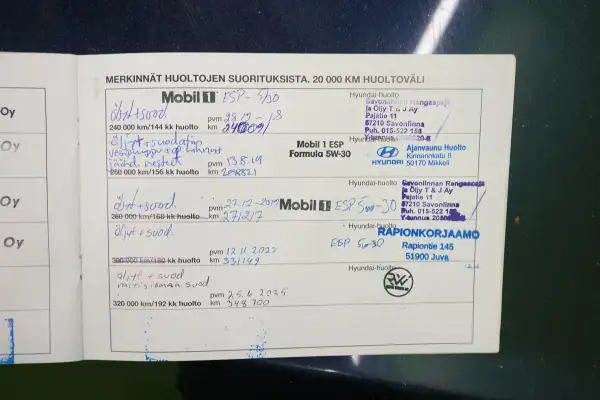 Oy
Oy
Oy
Oy
MERKINNÄT HUOLTOJEN SUORITUKSISTA. 20 000 KM HUOLTOVÄLI
Mobil 1 ESP - 5/30
Hyundai-huolto
öljyt + suod
pvm 28.12 - 18
240 000 km/144 kk huolto km
Savonlinnan Rengaspaja
ja Öljy T & J Ay
Pajatie 11
57210 Savonlinna
Puh. 015-522 158
Y-tunnus
öljyt + suodatin
jäähd. nesteet
pvm 13.8.19
260 000 km/156 kk huolto km
Mobil 1 ESP
Formula 5W-30
Hyundai-huolto
HYUNDAI
Ajanvaunu Huolto
Kinnarinkatu 6
50170 Mikkeli
öljyt + suod
27.12-2019
280 000 km/168 kk huolto km 271217
Mobil 1 ESP 5w-30
Hyundai-huolto
Savonlinnan Rengaspaja
ja Öljy T & J Ay
Pajatie 11
57210 Savonlinna
Puh. 015-522
Y-tunnus
öljyt + suod
pvm 12.11.2022
300 000 km/180 kk huolto km 331149
ESP 5w-30
Hyundai-huolto
RAPIONKORJAAMO
Rapiontie 145
51900 Juva
öljyt + suod
raitisilman suod
pvm 25.6.2025
320 000 km/192 kk huolto km 348700
Hyundai-huolto